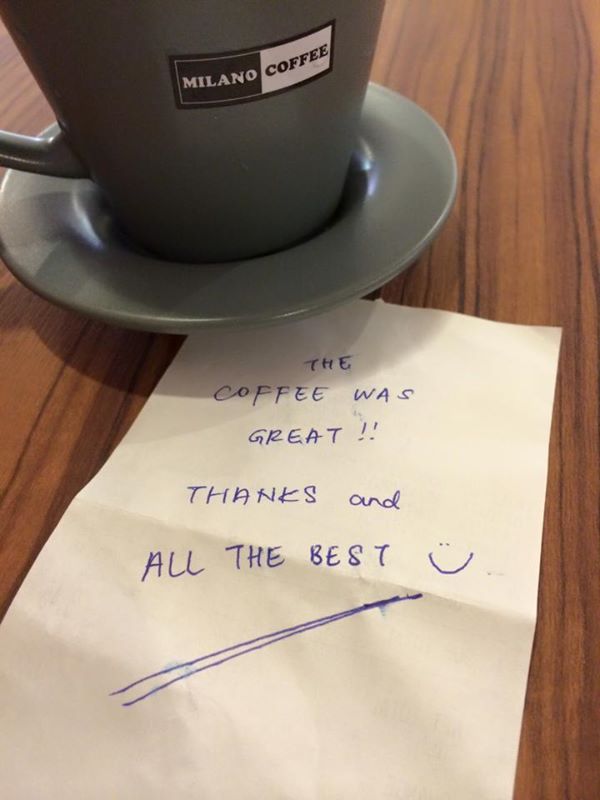 MILANO COFFEE
THE
COFFEE WAS
GREAT !!
THANKS and
ALL THE BEST